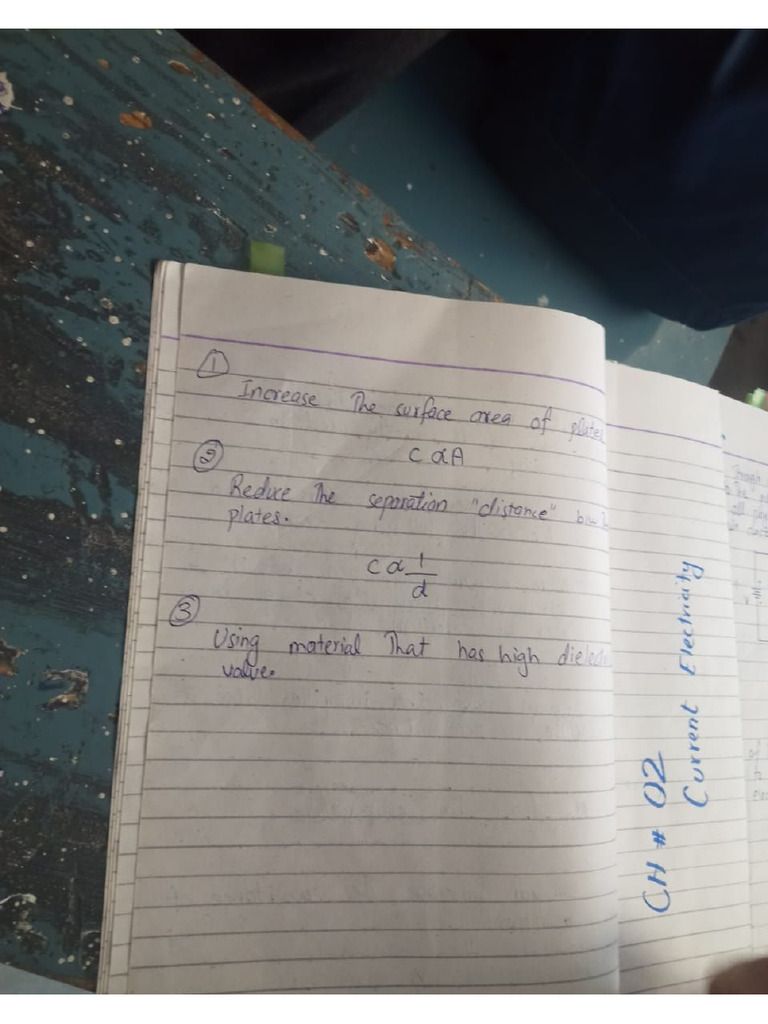 1
Increase The surface area of plates
C α A
2
Reduce The separation "distance"
plates.
C α 1/d
3
Using material That has high
value.
CH # 02
Current Electricity